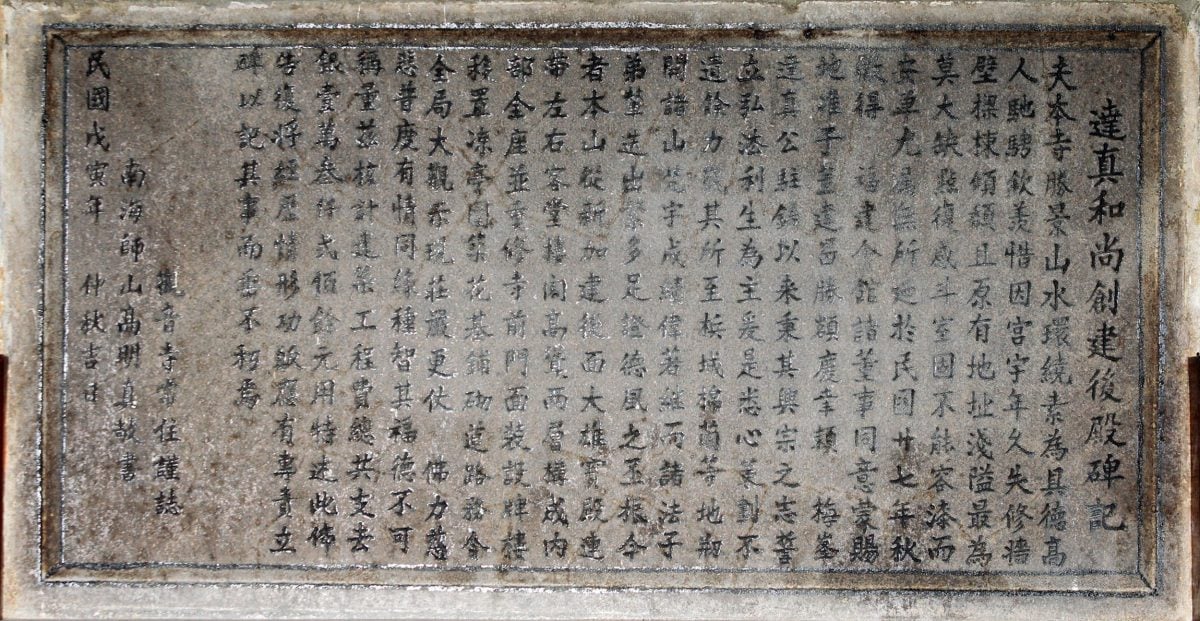 達真和尚創建後殿碑記
夫本寺勝景山水環繞素為具德高
人馳騁欽羨惜因宮宇年久失修牆
壁樑棟傾頹且原有地址淺隘最為
莫大缺點復感斗室固不能容漆而
安單尤屬無所廼於民囯廿七年秋
徵得 福建会館諸董事同意蒙賜
地准予蓋建勝額慶幸賴 梅峯
達真公駐錫以来秉其興宗之志誓
立弘法利生為主爰是悉心策劃不
遺餘力其所至檳城棉蘭等地刱
開諸山梵宇成績偉著繼而諸法子
弟輩迭出衆多足證德風之丕振今
者本山從新加建後面大雄寳殿連
帶左右客堂樓閣高覽兩層構成内
部全座並重修寺前門面裝設牌樓
移置凉亭圍築花基鋪砌道路務令
全局大觀示現莊嚴更仗 佛力慈
悲普度有情同緣種智其福德不可
稱量茲核計建築工程費總共支去
銀壹萬叁仟弍佰餘元用特述此佈
告復將經歷情形功竣應有專責立
碑以記其事而垂不朽焉
觀音寺常住謹誌
南海師山高明真敬書
民國戊寅年 仲秋吉日